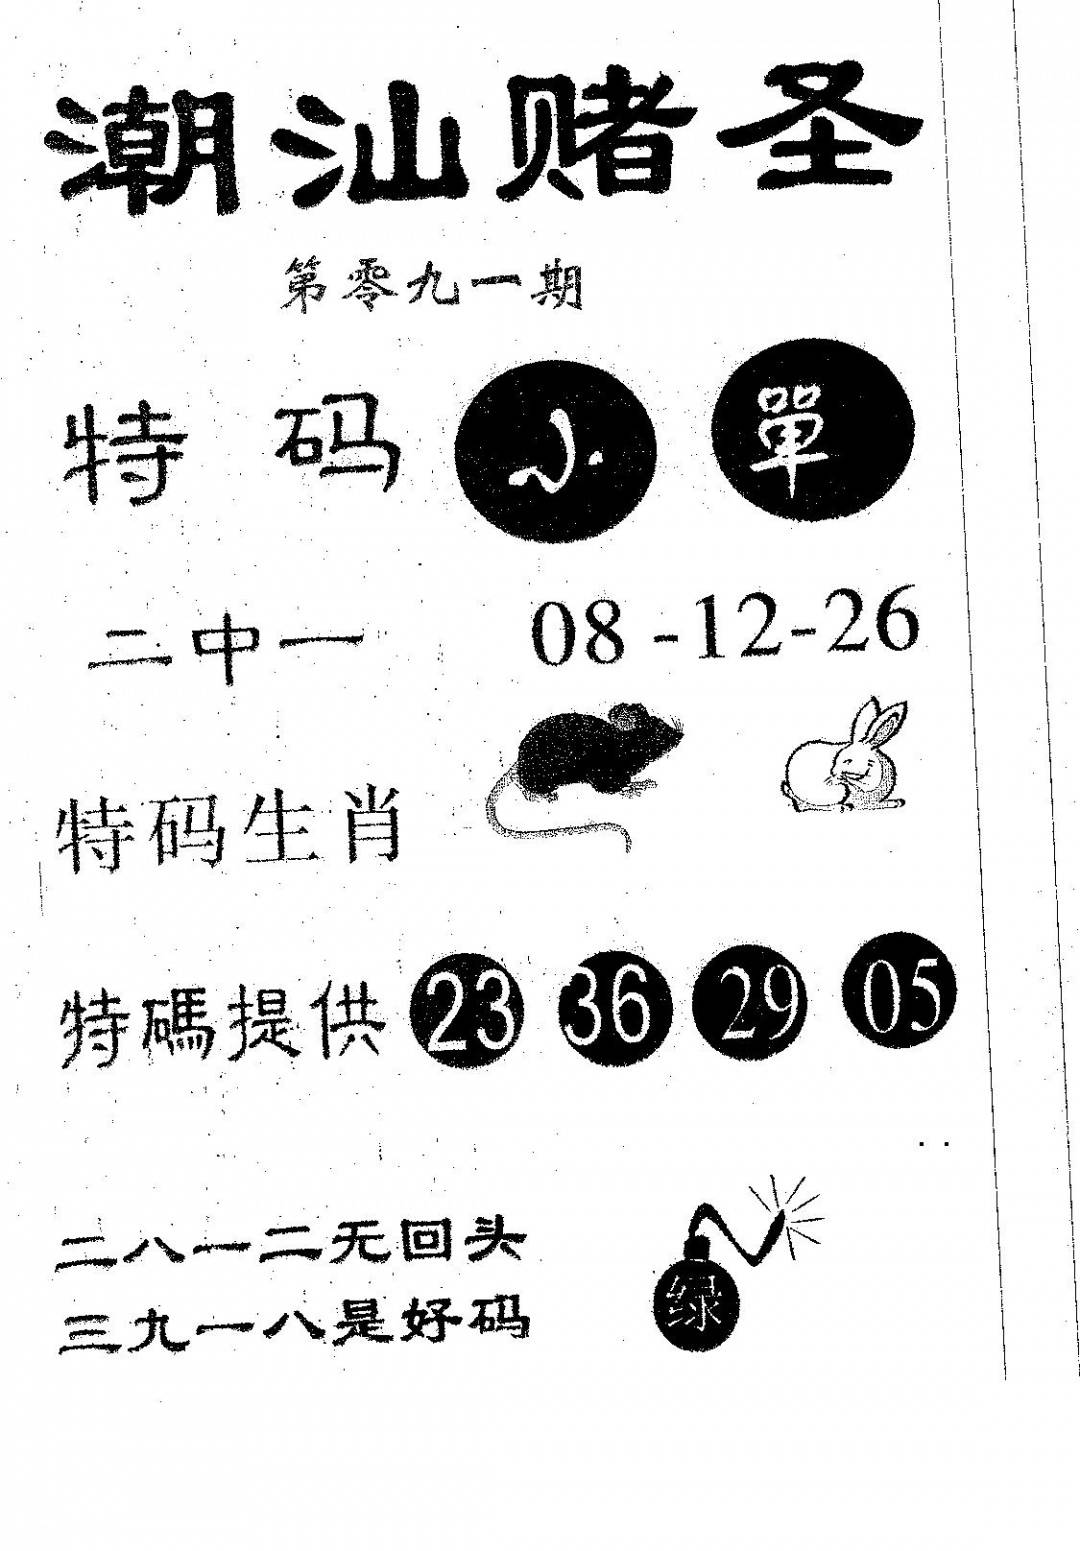 潮汕赌圣
第零九一期
特码 小 單
二中一 08-12-26
特码生肖
特碼提供 23 36 29 05
二八一二无回头
三九一八是好码
绿